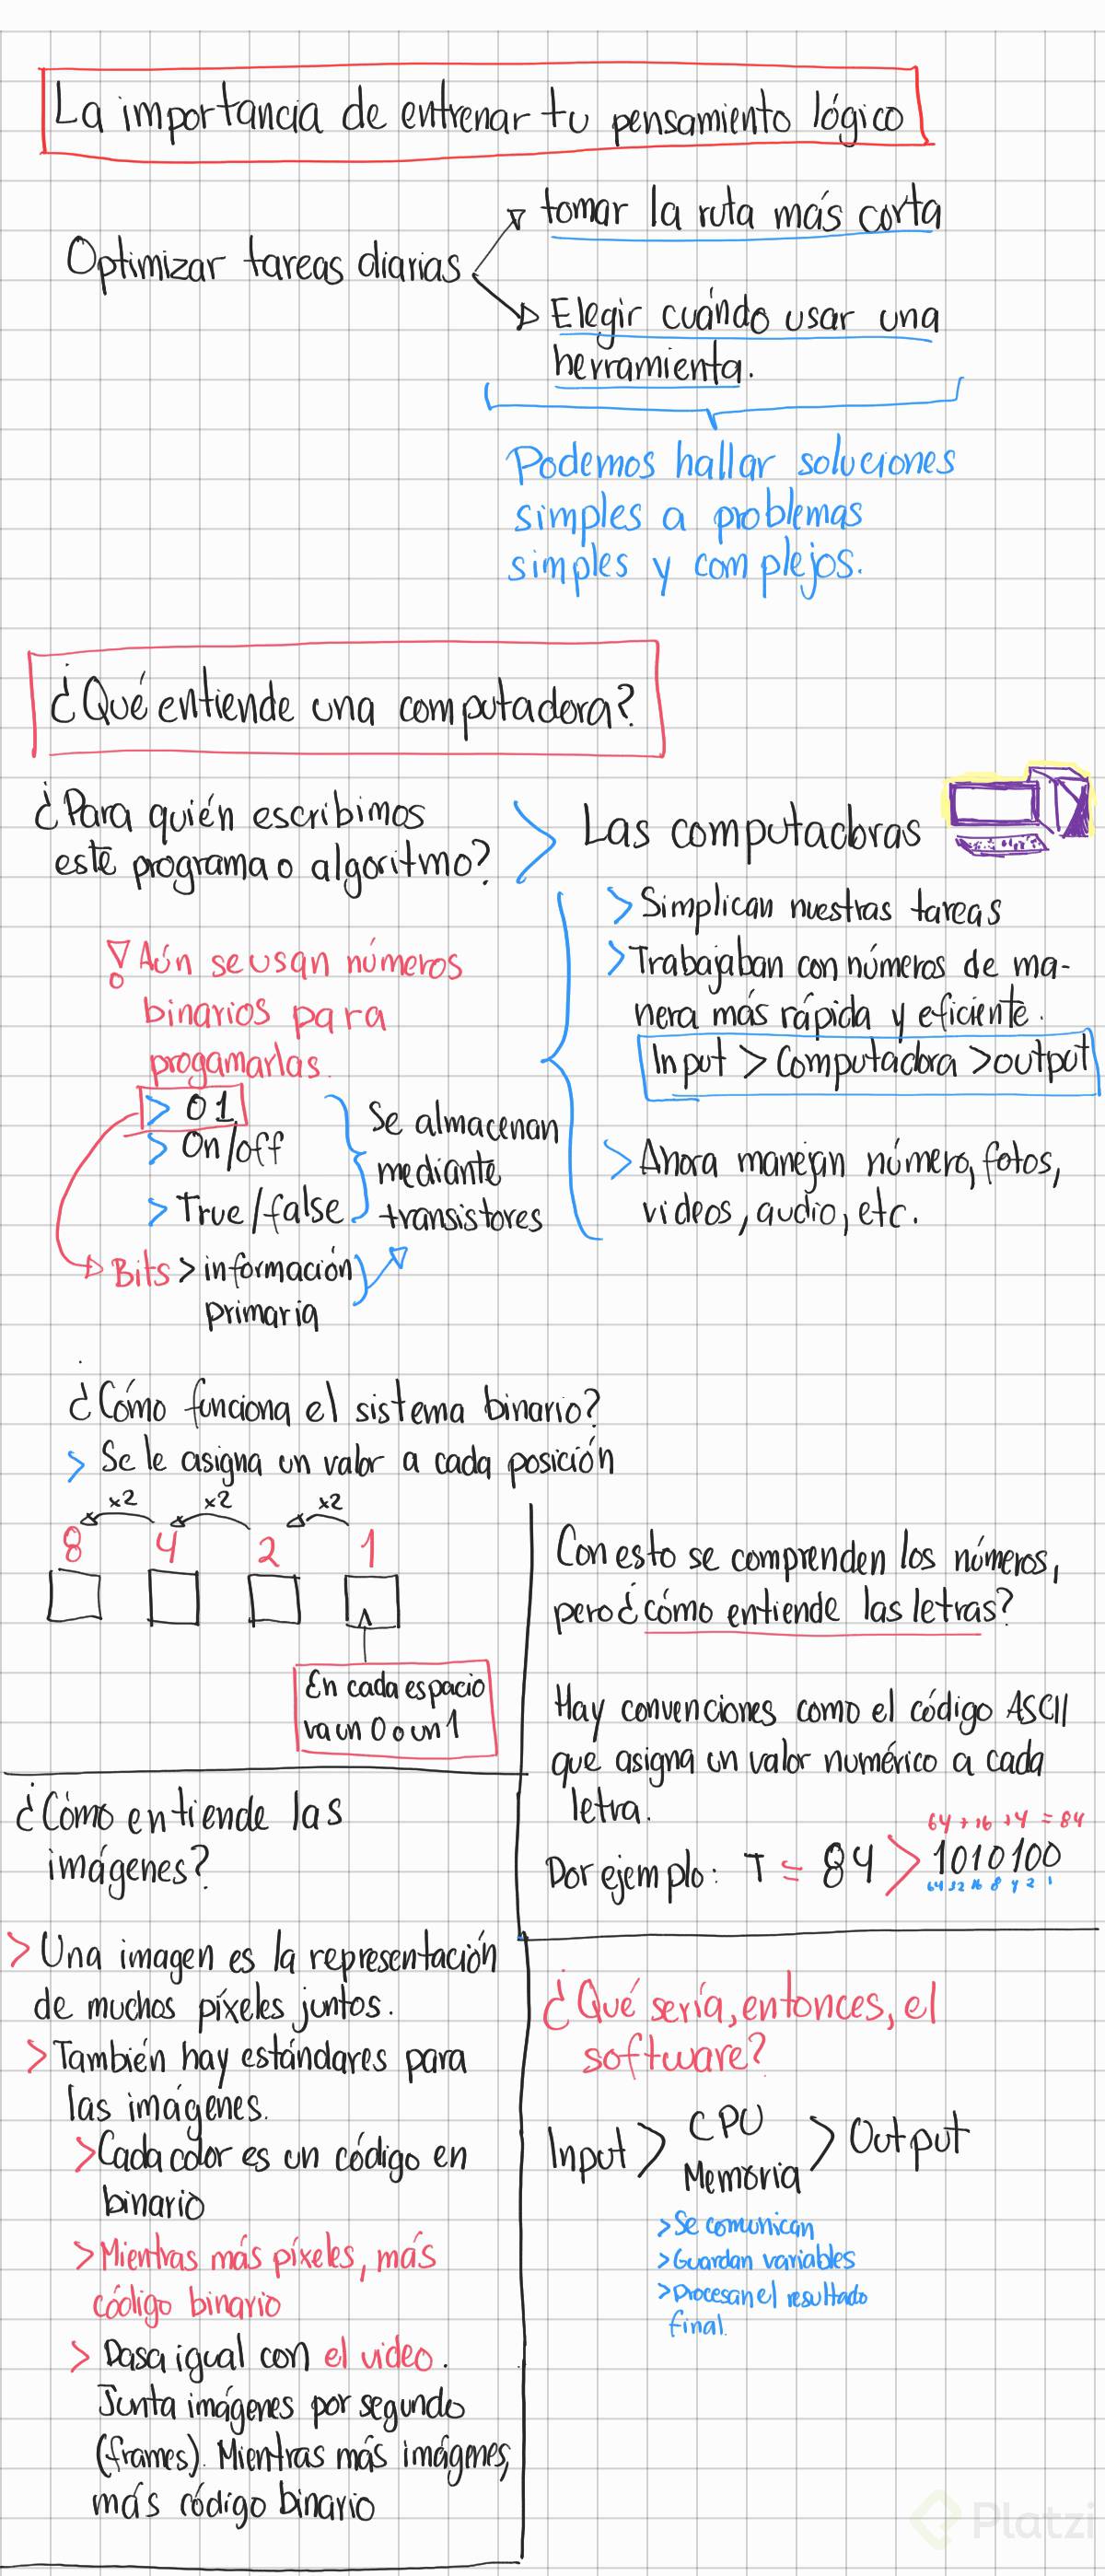 La importancia de entrenar tu pensamiento lógico
Optimizar tareas diarias
tomar la ruta más corta
Elegir cuándo usar una
herramienta.
Podemos hallar soluciones
simples a problemas
simples y complejos.
¿Qué entiende una computadora?
¿Para quién escribimos
este programa o algoritmo?
> Las computadoras
> Simplican nuestras tareas
> Trabajaban con números de ma-
nera más rápida y eficiente.
Input > Computadora > output
> Ahora manejan número, fotos,
videos, audio, etc.
Aún se usan números
binarios para
progamarlas.
> 01
> On/off
> True/false
Se almacenan
mediante
transistores
Bits > información
primaria
¿Cómo funciona el sistema binario?
> Se le asigna un valor a cada posición
x2 x2 x2
8 4 2 1
En cada espacio
va un 0 o un 1
Con esto se comprenden los números,
pero ¿cómo entiende las letras?
Hay convenciones como el código ASCII
que asigna un valor numérico a cada
letra.
64 + 16 + 4 = 84
Por ejemplo: T = 84 > 1010100
64 32 16 8 4 2 1
¿Cómo entiende las
imágenes?
> Una imagen es la representación
de muchos píxeles juntos.
> También hay estándares para
las imágenes.
> Cada color es un código en
binario
> Mientras más píxeles, más
código binario
> Pasa igual con el video.
Junta imágenes por segundo
(frames). Mientras más imágenes,
más código binario
¿Qué sería, entonces, el
software?
Input > CPU
Memoria > Output
> Se comunican
> Guardan variables
> Procesan el resultado
final.
Platzi